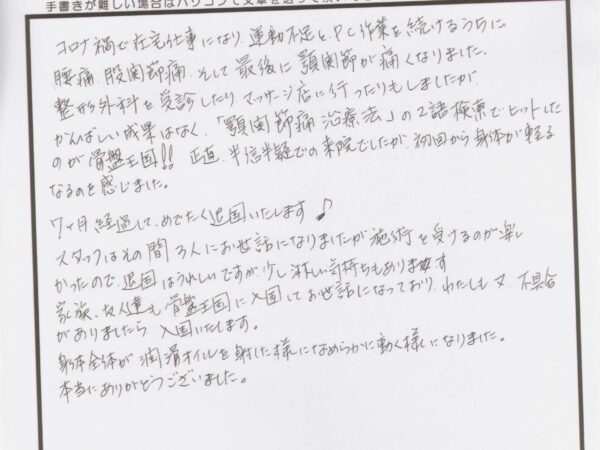 手書きが難しい場合はパソコンで文章を送って頂い
コロナ禍で在宅仕事になり、運動不足と、PC作業を続けるうちに
腰痛、股関節痛、そして最後に顎関節が痛くなりました。
整形外科を受診したり、マッサージ店に行ったりもしましたが
かんばしい成果はなく、「顎関節痛 治療法」の2語検索でヒットした
のが骨盤王国!! 正直、半信半疑での来院でしたが、初回から身体が軽る
なるのを感じました。
7ヶ月経過して、めでたく退国いたします♪
スタッフはその間3人にお世話になりましたが施術を受けるのが楽し
かったので、退国はうれしいですが、少し淋しい気持ちもあります
家族、友人達も骨盤王国に入国してお世話になっており、わたしも又、不具合
がありましたら入国いたします。
身体全体が潤滑オイルを射した様になめらかに動く様になりました。
本当にありがとうございました。